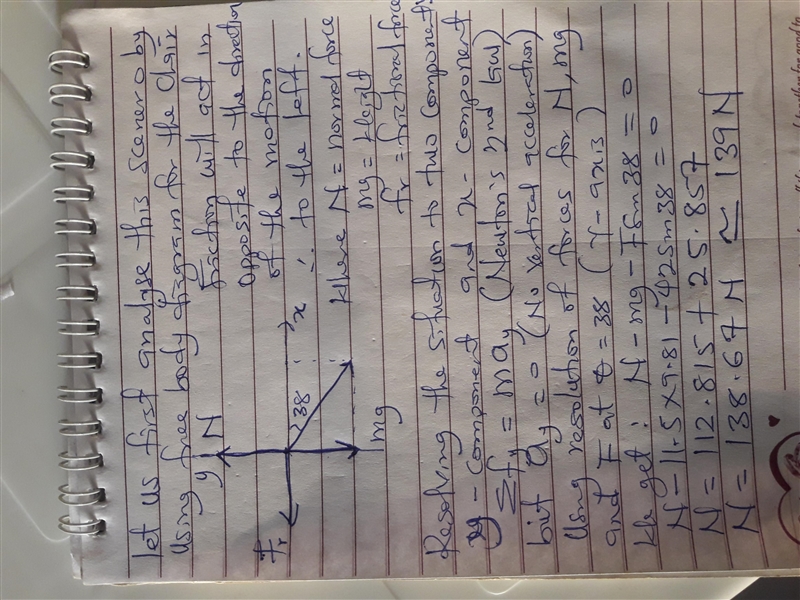 let us first analyse this scenero by
using free body diagram for the chair
friction will act in
opposite to the direction
of the motion
∴ to the left.
Where N = normal force
mg = weight
fr = frictional force
y
N
Fr
38
x
mg
Resolving the situation to two components
y - component and x - component
Σfy = may (Newton's 2nd law)
but ay = 0 (No vertical acceleration)
Using resolution of forces for N, mg
and F at θ = 38 (Y-axis)
We get : N - mg - Fsin38 = 0
N - 11.5 x 9.81 - 42sin38 = 0
N = 112.815 + 25.857
N = 138.67 N ≃ 139 N